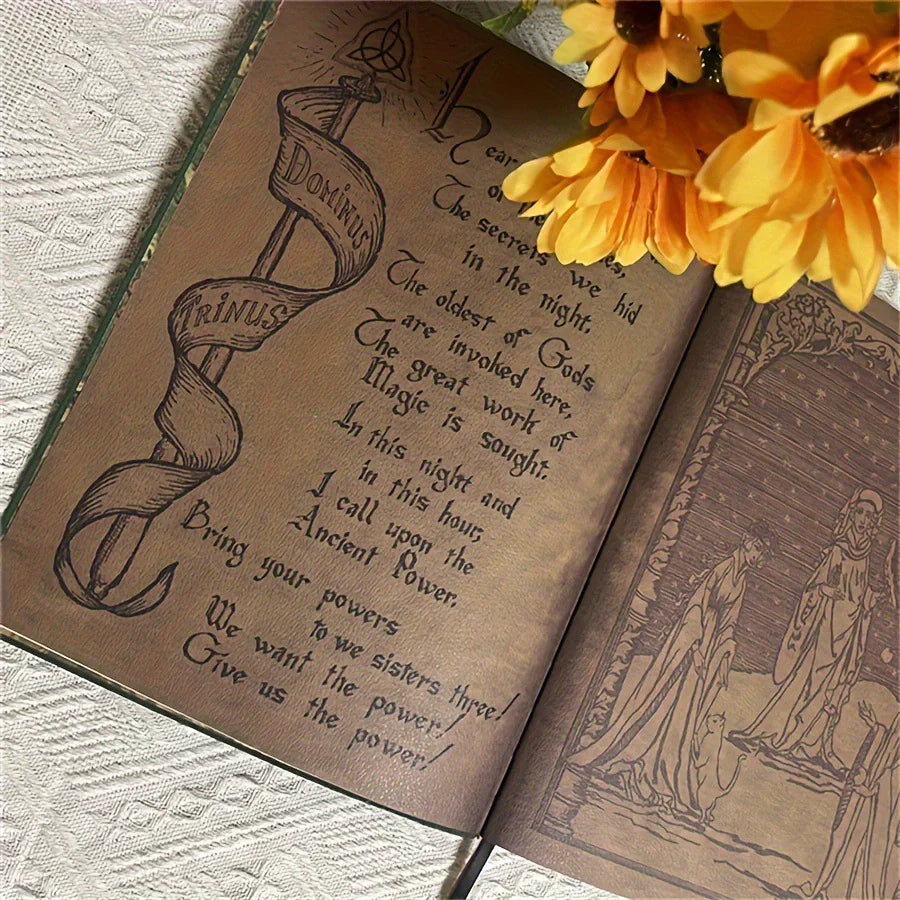 DOMINUS
TRINUS
Hear
The secrets we hid
in the night.
The oldest of Gods
are invoked here,
The great work of
Magic is sought.
In this night and
in this hour,
I call upon the
Ancient Power.
Bring your powers
to we sisters three!
We want the power!
Give us the power!